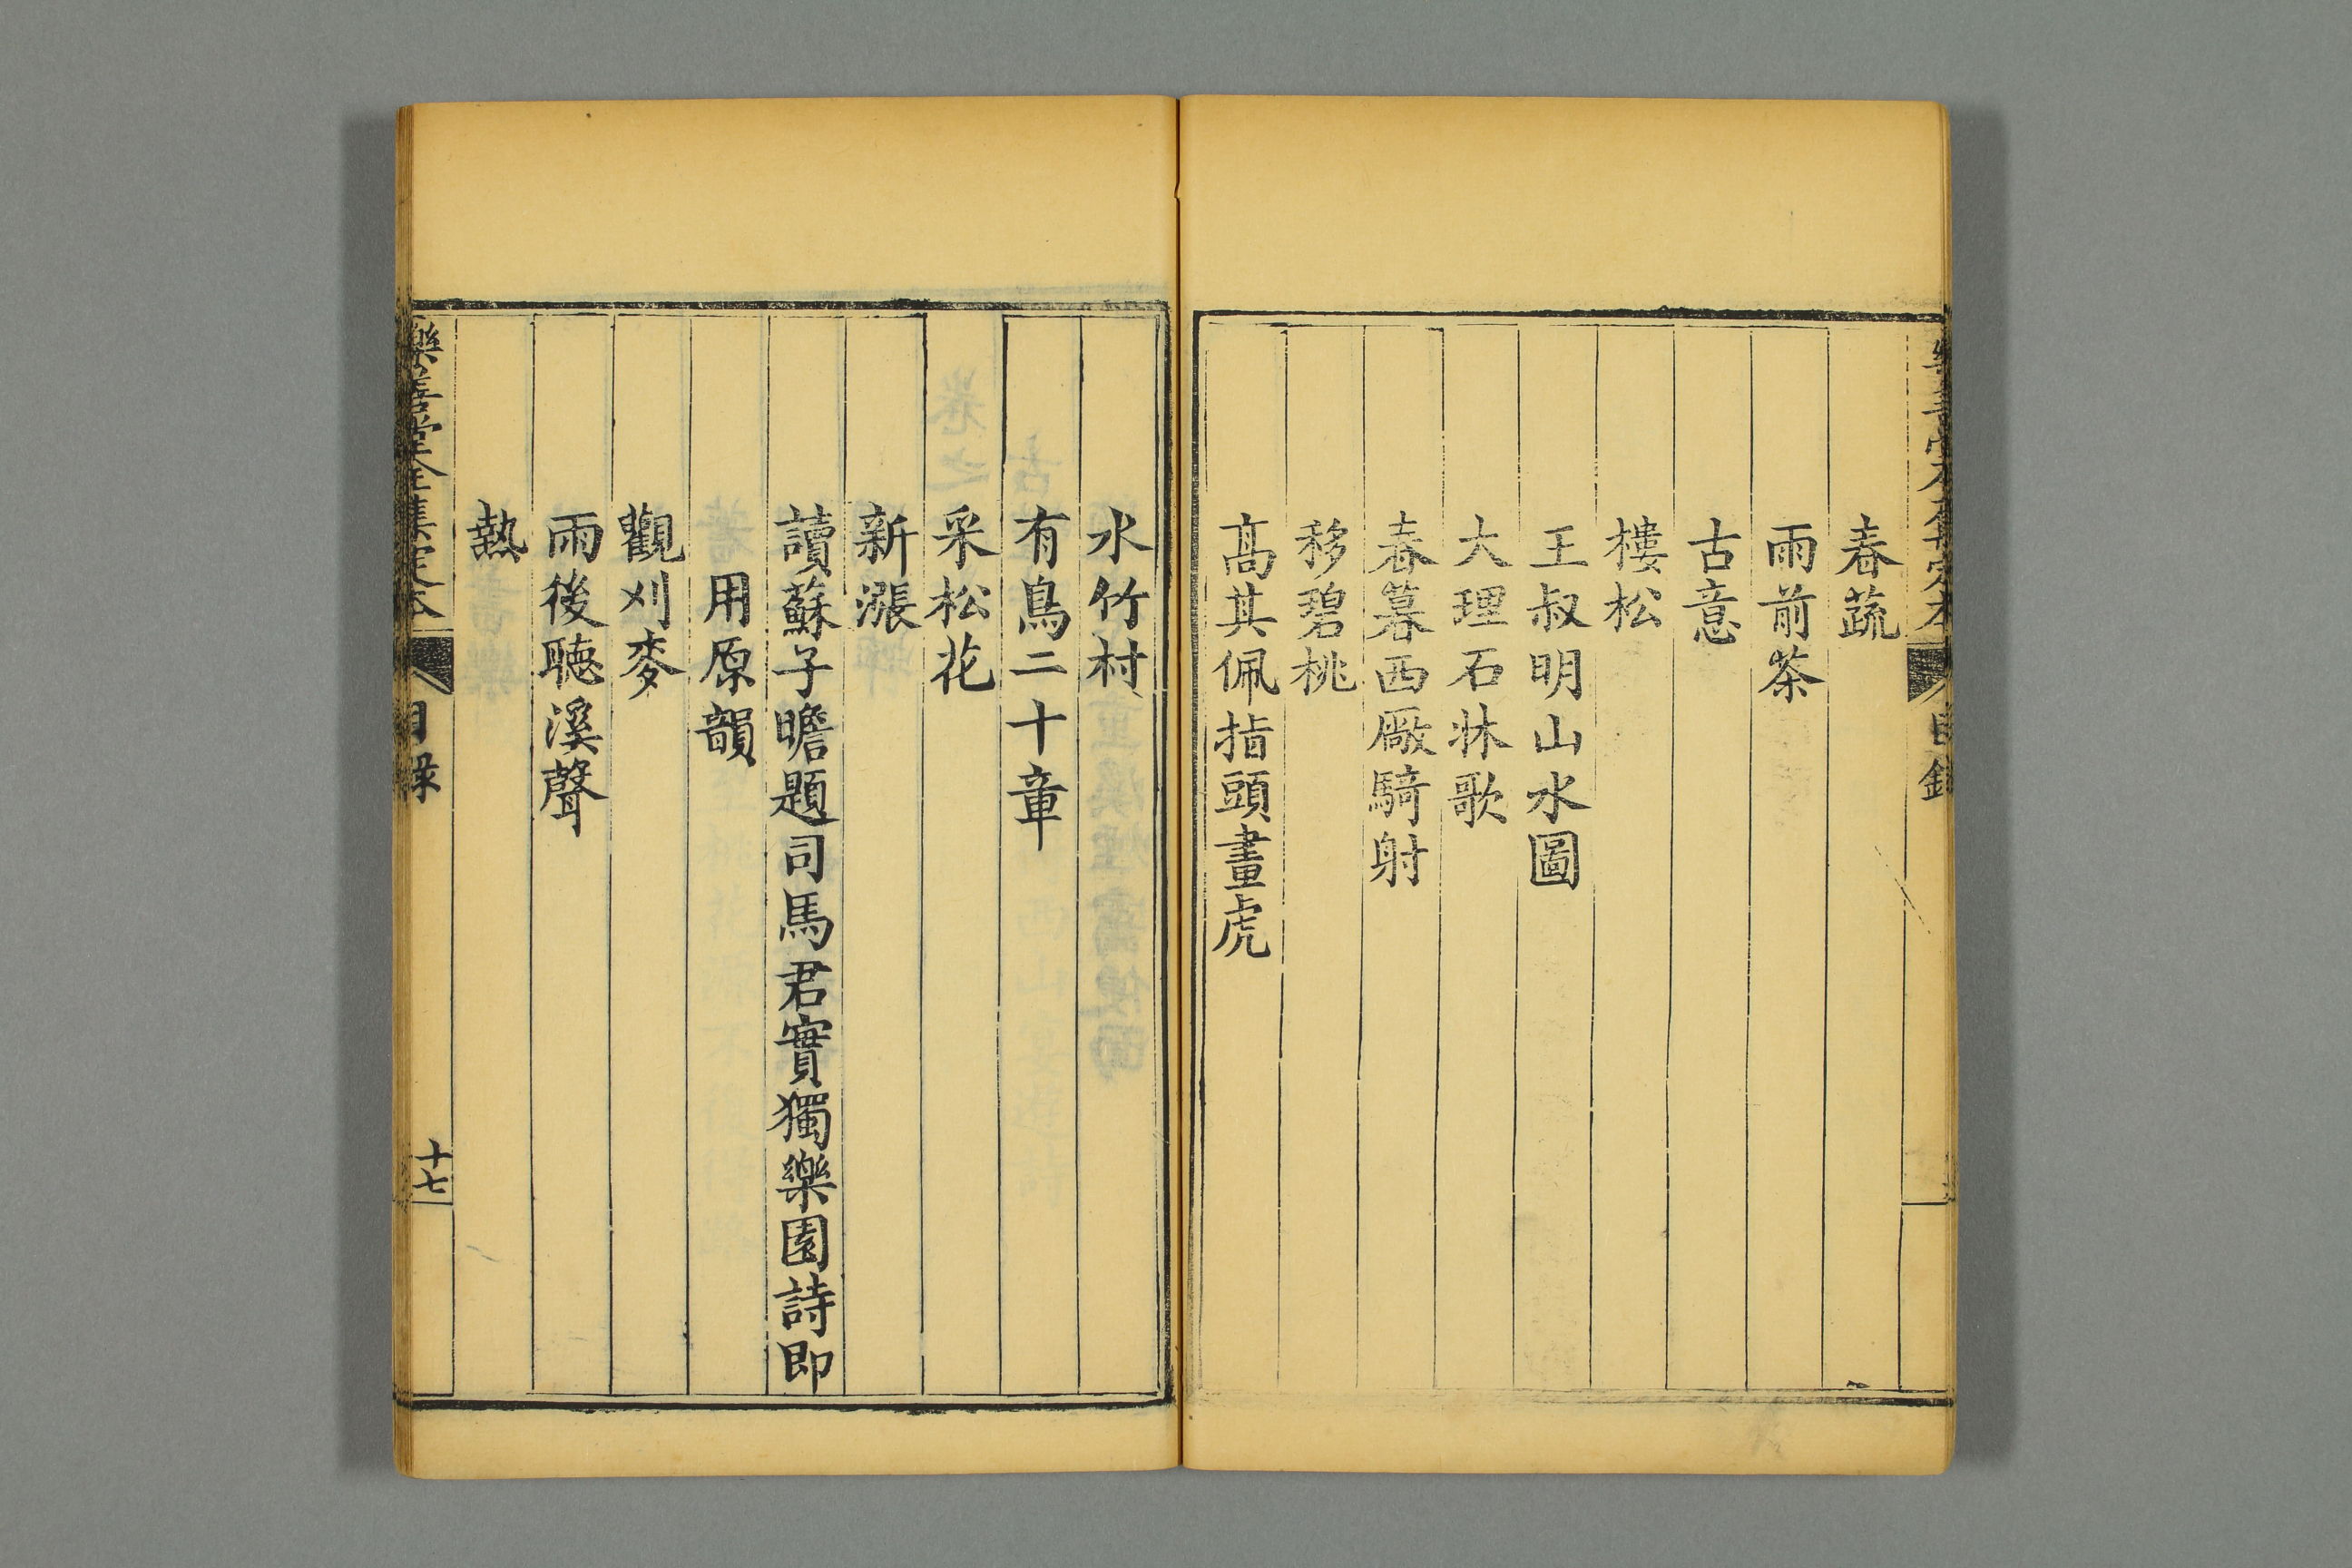 春蔬
雨前茶
古意
樓松
王叔明山水圖
大理石牀歌
春暮西厰騎射
移碧桃
高其佩指頭畫虎
水竹村
有鳥二十章
采松花
新漲
讀蘇子瞻題司馬君實獨樂園詩即
用原韻
觀刈麥
雨後聽溪聲
熱
樂善堂全集定本
目錄
十七